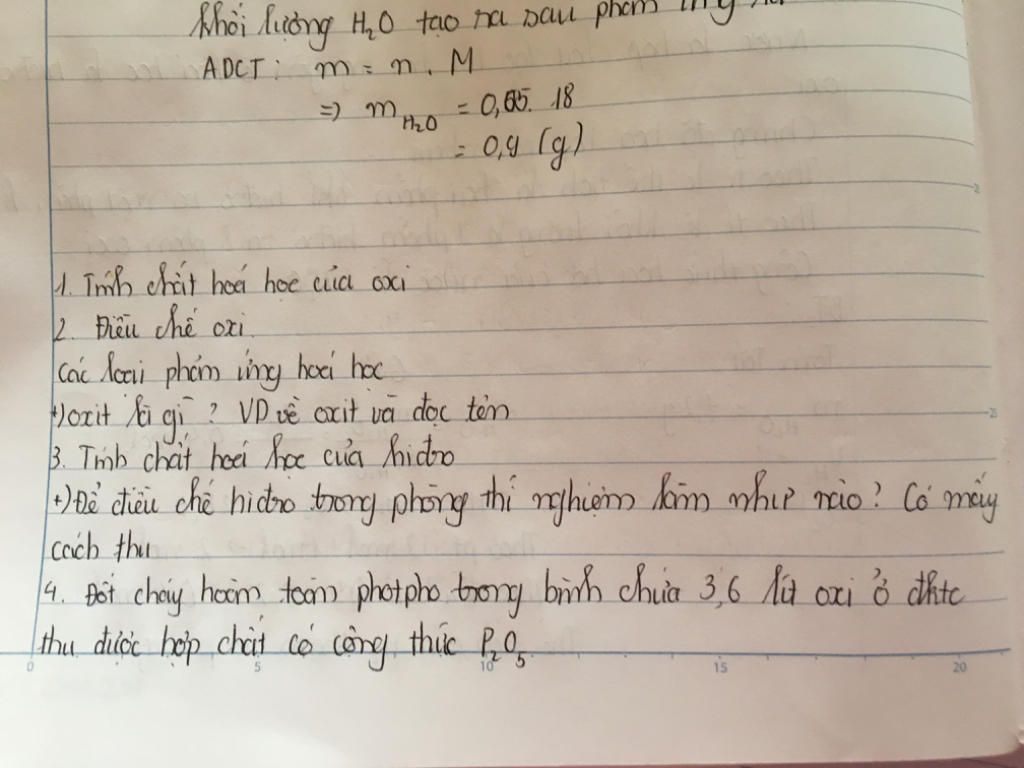 khối lượng H₂O tạo ra sau phản ứng
ADCT: m = n. M
=> m H₂O = 0,05. 18
= 0,9 (g)
1. Tính chất hoá học của oxi
2. Điều chế oxi.
Các loại phản ứng hoá học
+) oxit là gì? VD về oxit và đọc tên
3. Tính chất hoá học của hiđro
+) Để điều chế hiđro trong phòng thí nghiệm làm như nào? Có mấy
cách thu
4. Đốt cháy hoàn toàn photpho trong bình chứa 3,6 lít oxi ở đktc
thu được hợp chất có công thức P₂O₅.
0 5 10 15 20
25